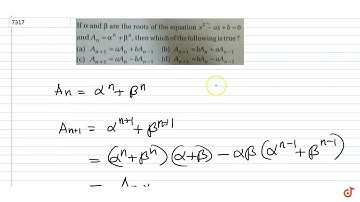 7317
If α and β are the roots of the equation x² - ax + b = 0
and Aₙ = αⁿ + βⁿ, then which of the following is true ?
(a) Aₙ₊₁ = aAₙ + bAₙ₋₁ (b) Aₙ₊₁ = bAₙ + aAₙ₋₁
(c) Aₙ₊₁ = aAₙ - bAₙ₋₁ (d) Aₙ₊₁ = bAₙ - aAₙ₋₁
Aₙ = αⁿ + βⁿ
Aₙ₊₁ = αⁿ⁺¹ + βⁿ⁺¹
= (αⁿ + βⁿ)(α + β) - αβ(αⁿ⁻¹ + βⁿ⁻¹)